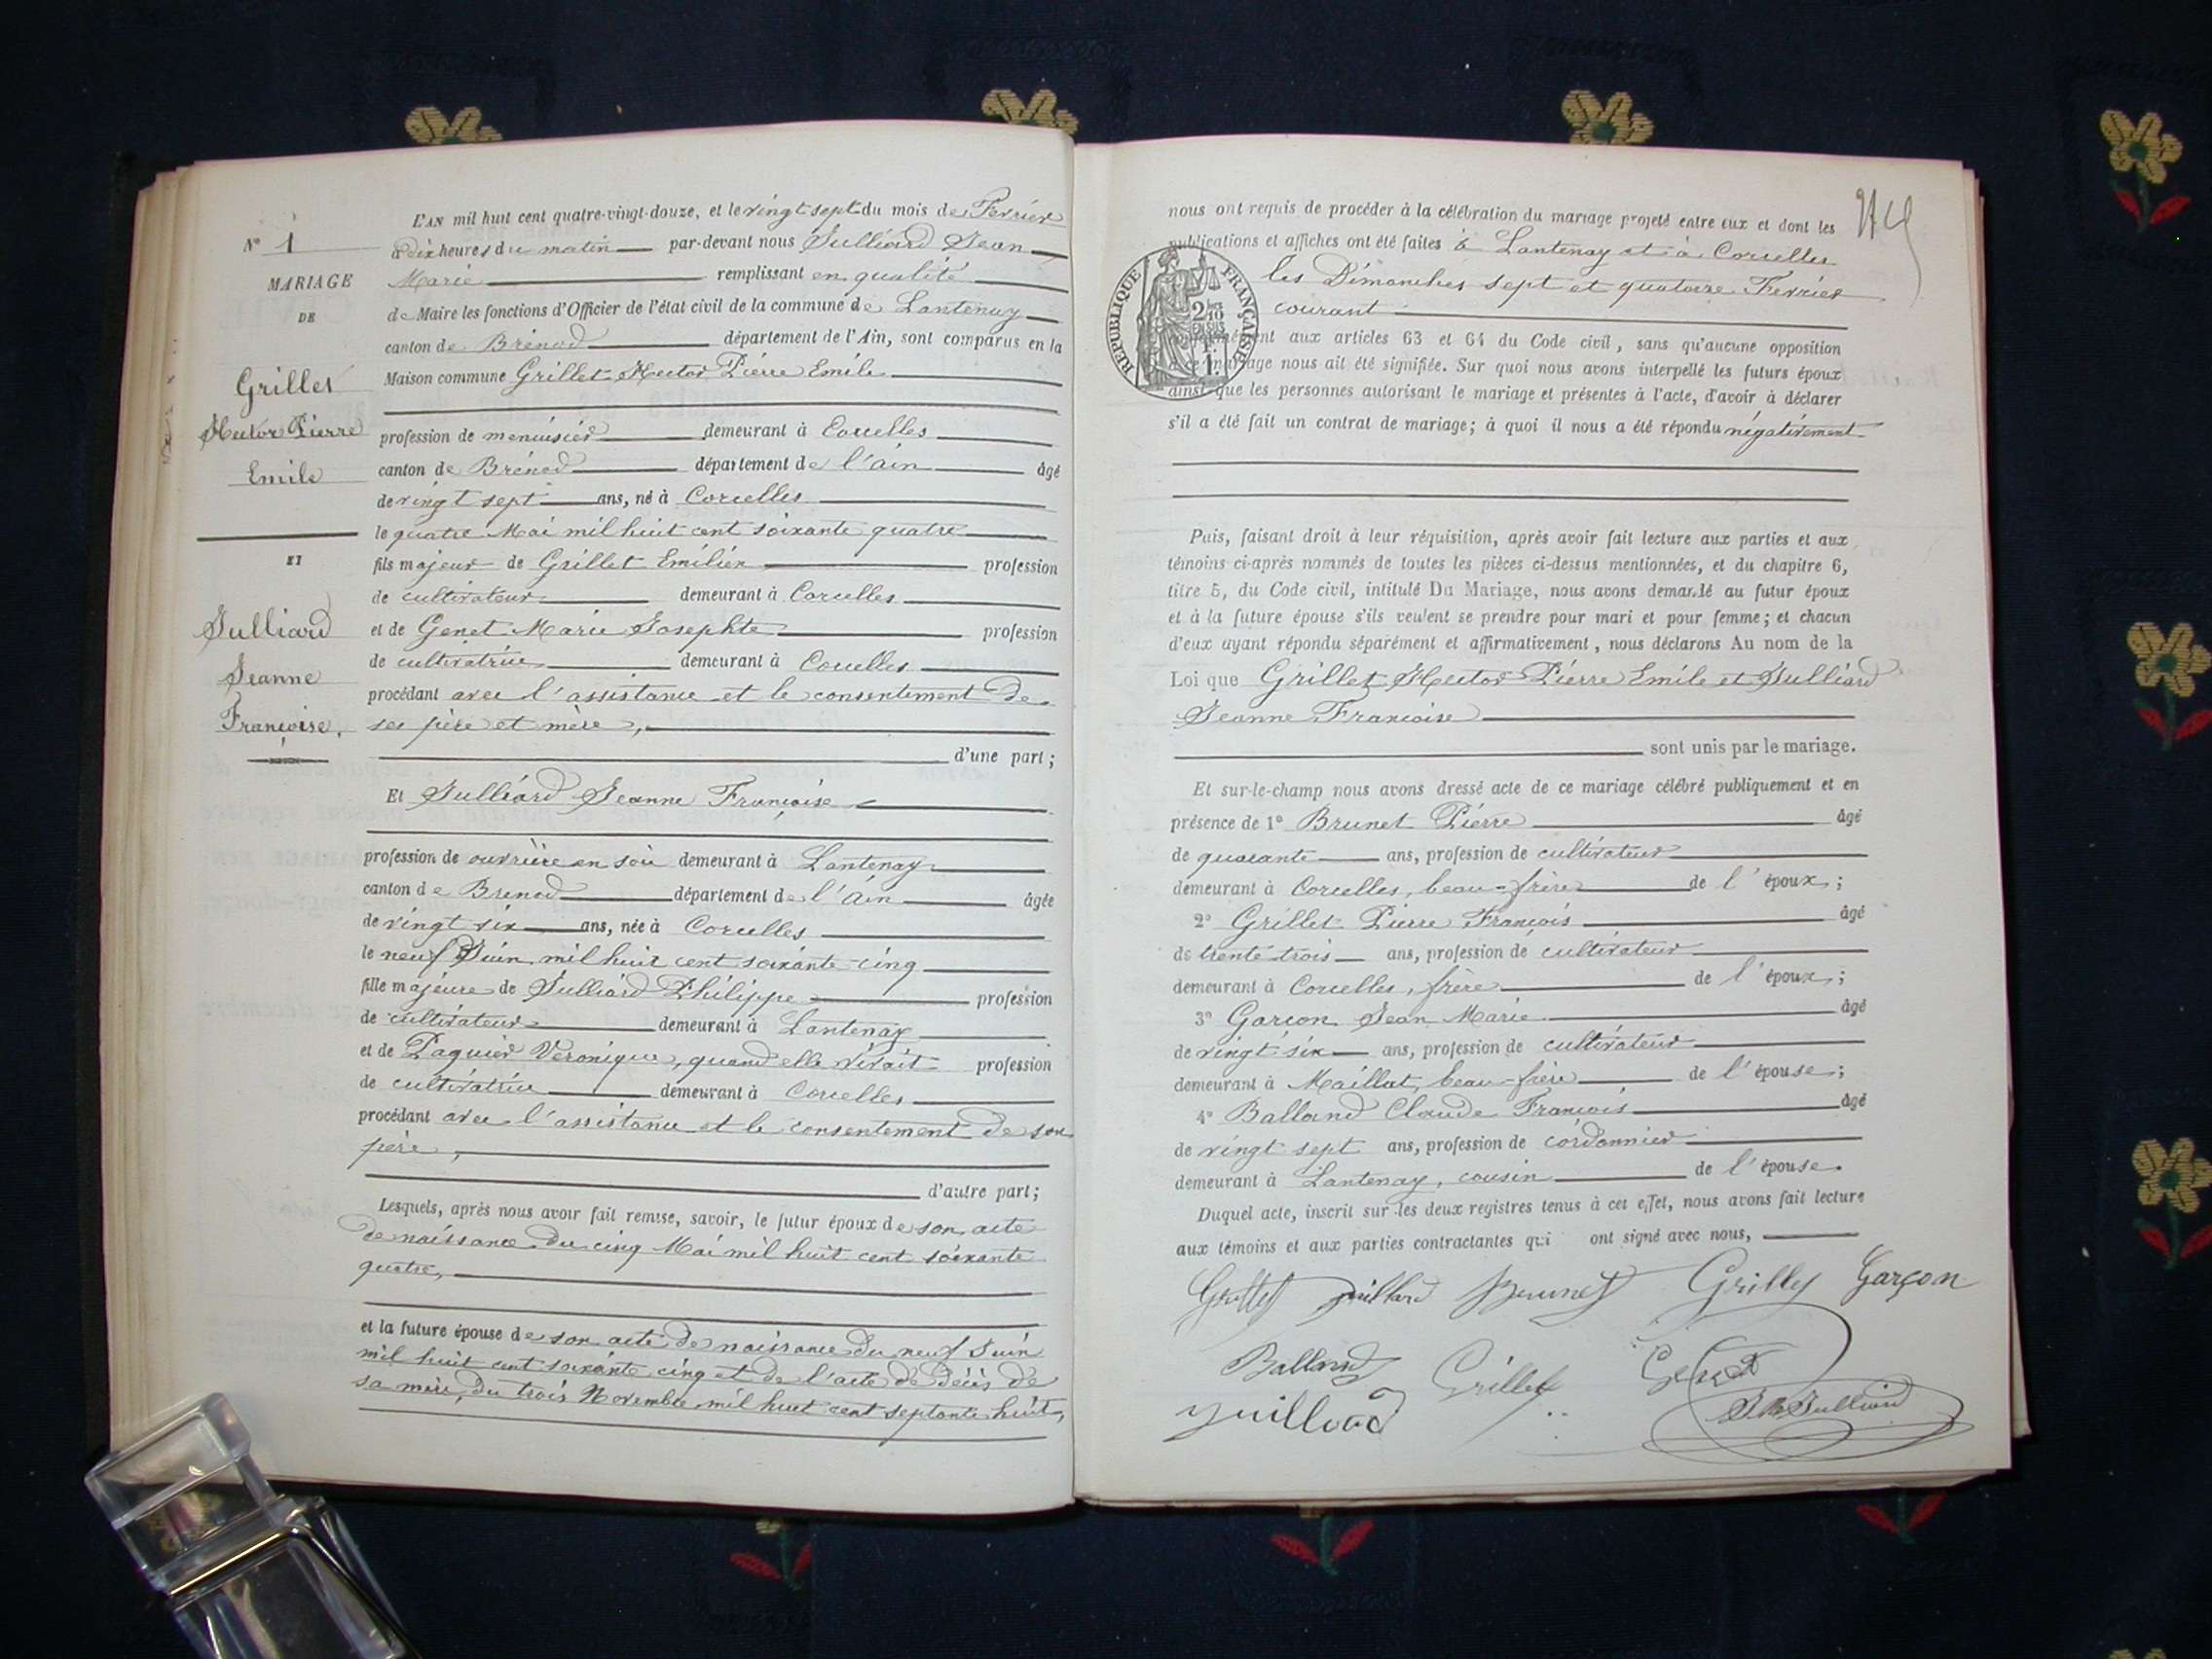 L'AN mil huit cent quatre-vingt-douze, et le vingt sept du mois de Fevrier
à dix heures du matin par-devant nous Julliard Jean
Marie remplissant en qualité
de Maire les fonctions d'Officier de l'état civil de la commune de Lantenay
canton de Brénod département de l'Ain, sont comparus en la
Maison commune Grillet Hector Pierre Emile
profession de menuisier demeurant à Corcelles
canton de Brénod département de l'ain âgé
de vingt sept ans, né à Corcelles
le quatre Mai mil huit cent soixante quatre
fils majeur de Grillet Emilien profession
de cultivateur demeurant à Corcelles
et de Genet Marie Josephte profession
de cultivatrice demeurant à Corcelles
procédant avec l'assistance et le consentement de
ses père et mère,
d'une part;
Et Julliard Jeanne Françoise
profession de ouvrière en soie demeurant à Lantenay
canton de Brenod département de l'ain âgée
de vingt six ans, née à Corcelles
le neuf Juin mil huit cent soixante cinq
fille majeure de Julliard Philippe profession
de cultivateur demeurant à Lantenay
et de Paquier Veronique, quand elle vivait profession
de cultivatrice demeurant à Corcelles
procédant avec l'assistance et le consentement de son
père,
d'autre part;
Lesquels, après nous avoir fait remise, savoir, le futur époux de son acte
de naissance du cinq Mai mil huit cent soixante
quatre,
et la future épouse de son acte de naissance du neuf Juin
mil huit cent soixante cinq et de l'acte de décès de
sa mère, du trois Novembre mil huit cent septante huit,
N° 1
MARIAGE
DE
Grillet
Hector Pierre
Emile
ET
Julliard
Jeanne
Françoise.
nous ont requis de procéder à la célébration du mariage projeté entre eux et dont les
publications et affiches ont été faites à Lantenay et à Corcelles
les Dimanches sept et quatorze Fevrier
courant
conformément aux articles 63 et 64 du Code civil, sans qu'aucune opposition
à ce mariage nous ait été signifiée. Sur quoi nous avons interpellé les futurs époux
ainsi que les personnes autorisant le mariage et présentes à l'acte, d'avoir à déclarer
s'il a été fait un contrat de mariage; à quoi il nous a été répondu négativement
REPUBLIQUE FRANÇAISE
2/10
1 F.
Puis, faisant droit à leur réquisition, après avoir fait lecture aux parties et aux
témoins ci-après nommés de toutes les pièces ci-dessus mentionnées, et du chapitre 6,
titre 5, du Code civil, intitulé Du Mariage, nous avons demandé au futur époux
et à la future épouse s'ils veulent se prendre pour mari et pour femme; et chacun
d'eux ayant répondu séparément et affirmativement, nous déclarons Au nom de la
Loi que Grillet Hector Pierre Emile et Julliard
Jeanne Françoise
sont unis par le mariage.
Et sur-le-champ nous avons dressé acte de ce mariage célébré publiquement et en
présence de 1° Brunet Pierre âgé
de quarante ans, profession de cultivateur
demeurant à Corcelles, beau-frère de l'époux;
2° Grillet Pierre François âgé
de trente trois ans, profession de cultivateur
demeurant à Corcelles, frère de l'époux;
3° Garçon Jean Marie âgé
de vingt six ans, profession de cultivateur
demeurant à Maillat, beau-frère de l'épouse;
4° Balland Claude François âgé
de vingt sept ans, profession de cordonnier
demeurant à Lantenay, cousin de l'épouse.
Duquel acte, inscrit sur les deux registres tenus à cet effet, nous avons fait lecture
aux témoins et aux parties contractantes qui ont signé avec nous,
Grillet Juillard Brunet Grillet Garçon
Balland Grillet Genet
Juillard J M Julliard